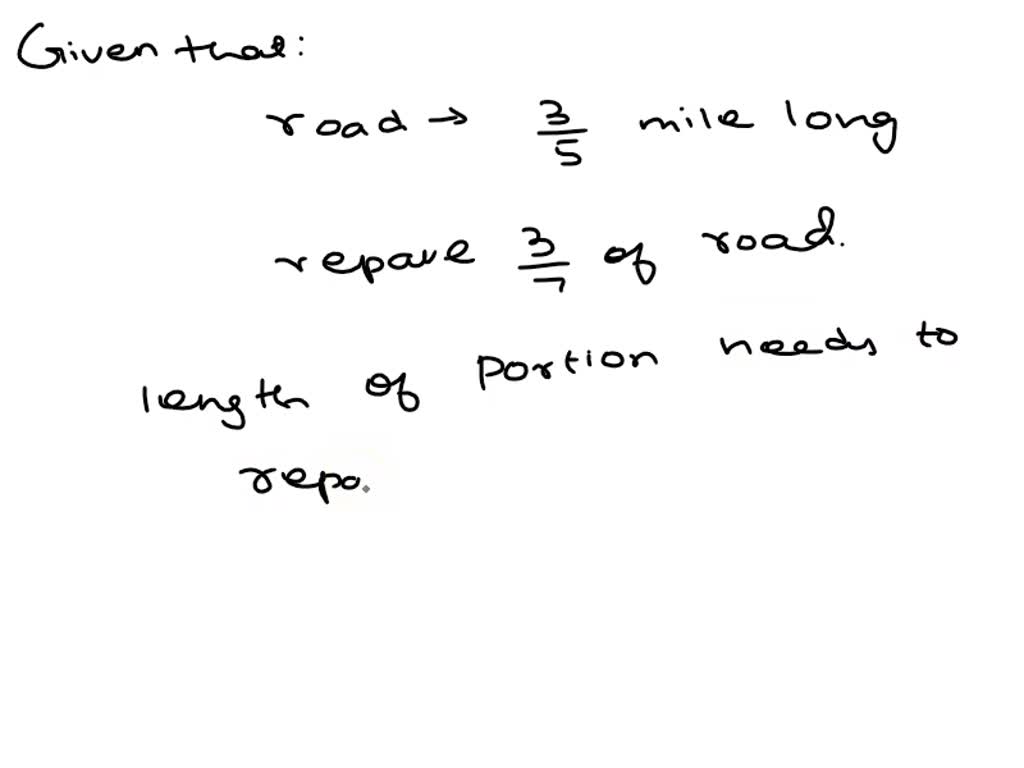 Given that:
road → 3/5 mile long
repave 3/7 of road.
length of portion needs to
repa